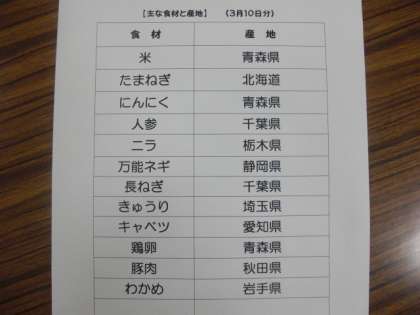 【主な食材と産地】 （3月10日分）
食材 産地
米 青森県
たまねぎ 北海道
にんにく 青森県
人参 千葉県
ニラ 栃木県
万能ネギ 静岡県
長ねぎ 千葉県
きゅうり 埼玉県
キャベツ 愛知県
鶏卵 青森県
豚肉 秋田県
わかめ 岩手県